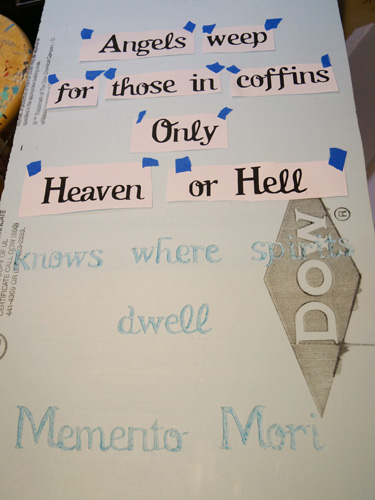 Angels weep
for those in coffins
Only
Heaven or Hell
knows where spirits
dwell
Memento Mori
DOW ®